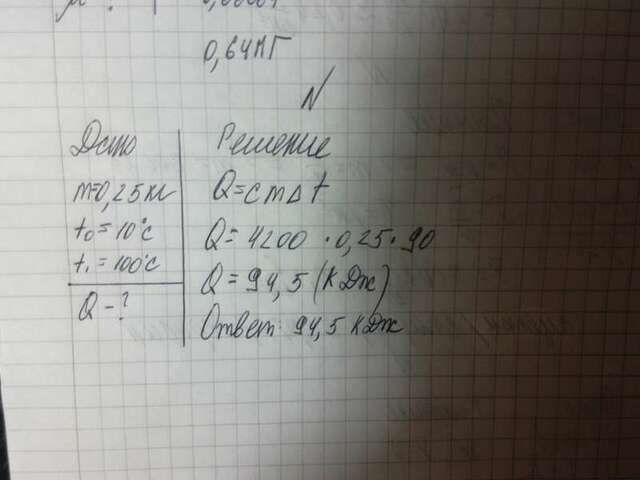 0,64кг
N
Дано
m=0,25кг
t₀=10°C
t₁=100°C
Q-?
Решение
Q=cmΔt
Q=4200·0,25·90
Q=94,5(кДж)
Ответ: 94,5 кДж